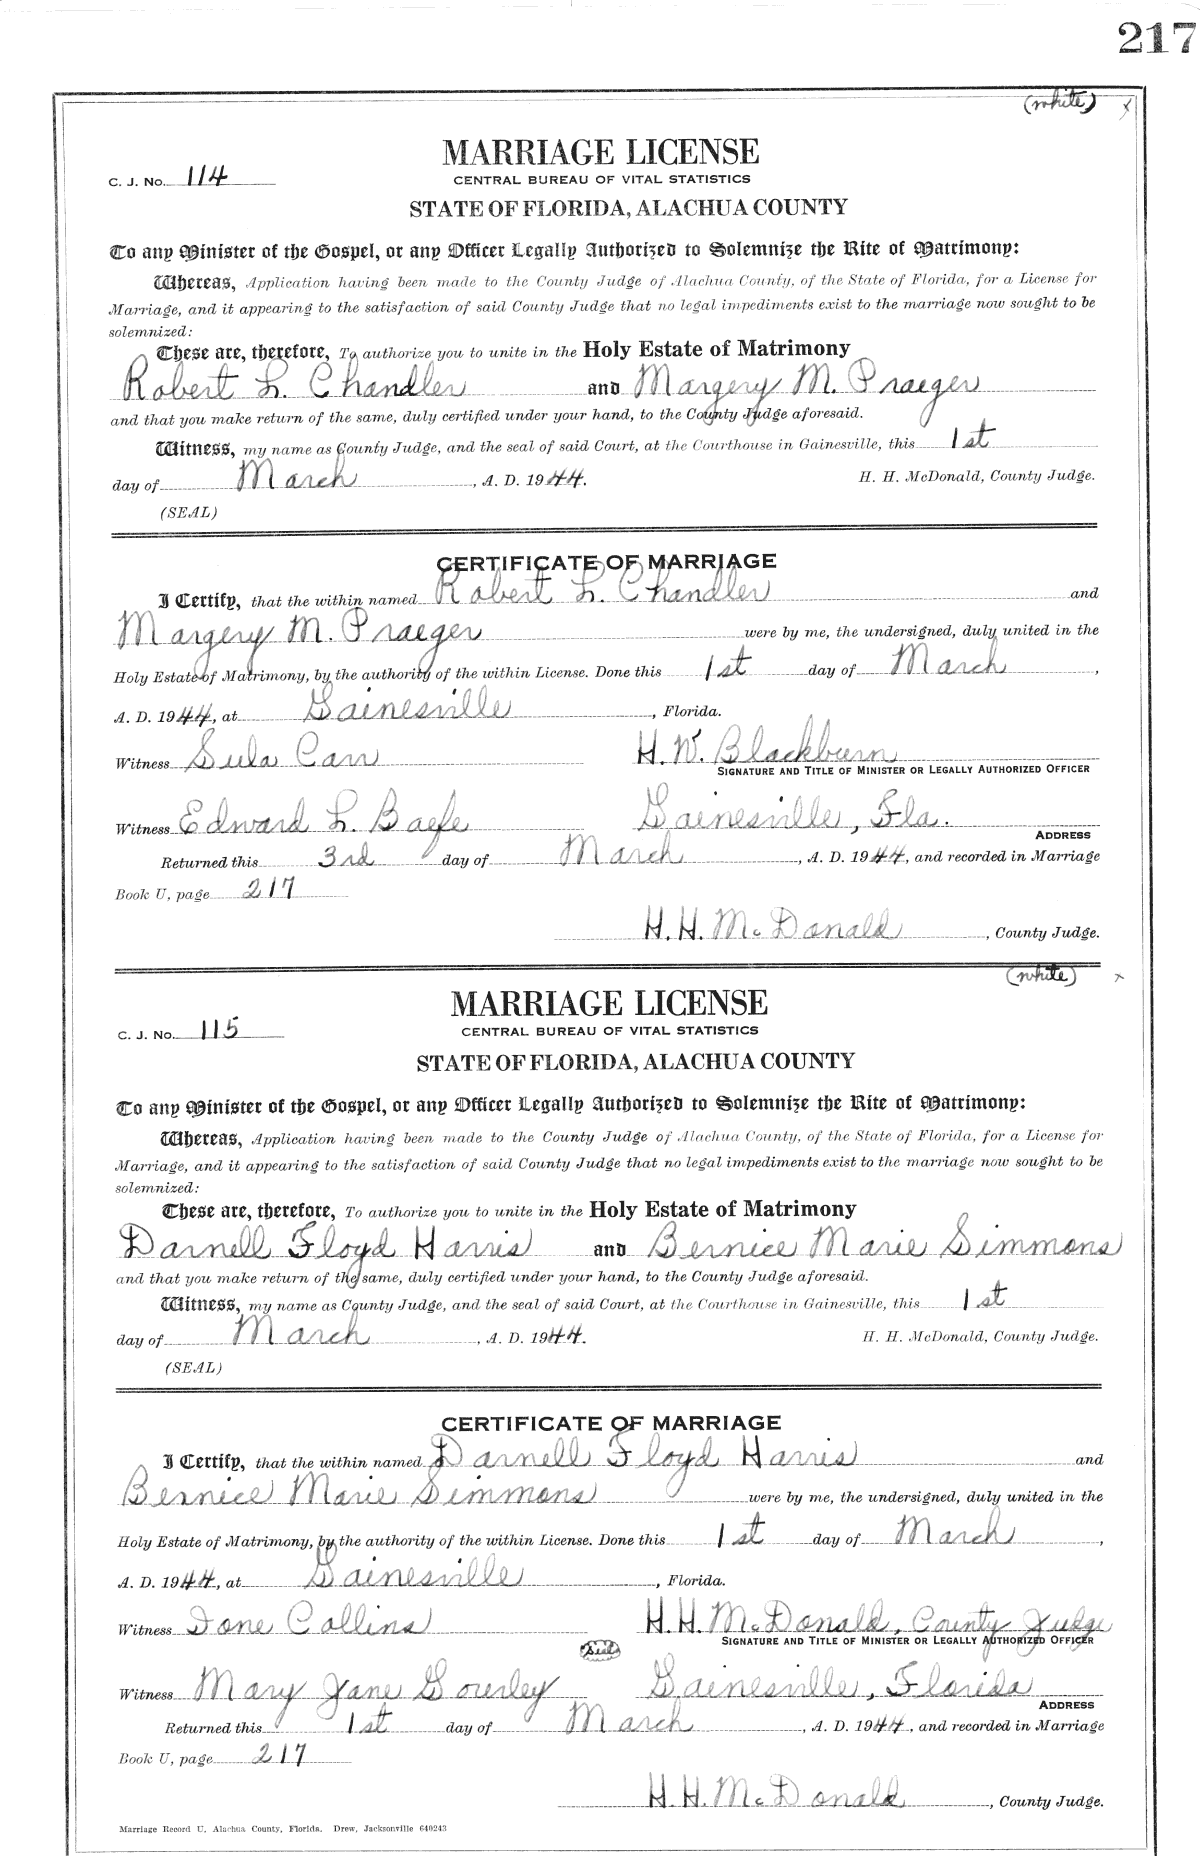 217
(white) x
MARRIAGE LICENSE
C. J. No. 114
CENTRAL BUREAU OF VITAL STATISTICS
STATE OF FLORIDA, ALACHUA COUNTY
To any Minister of the Gospel, or any Officer Legally Authorized to Solemnize the Rite of Matrimony:
Whereas, Application having been made to the County Judge of Alachua County, of the State of Florida, for a License for
Marriage, and it appearing to the satisfaction of said County Judge that no legal impediments exist to the marriage now sought to be
solemnized:
These are, therefore, To authorize you to unite in the Holy Estate of Matrimony
Robert L. Chandler and Margery M. Praeger
and that you make return of the same, duly certified under your hand, to the County Judge aforesaid.
Witness, my name as County Judge, and the seal of said Court, at the Courthouse in Gainesville, this 1st
day of March, A. D. 1944. H. H. McDonald, County Judge.
(SEAL)
CERTIFICATE OF MARRIAGE
I Certify, that the within named Robert L. Chandler and
Margery M. Praeger were by me, the undersigned, duly united in the
Holy Estate of Matrimony, by the authority of the within License. Done this 1st day of March,
A. D. 1944, at Gainesville, Florida.
Witness Sula Carr H. W. Blackburn
SIGNATURE AND TITLE OF MINISTER OR LEGALLY AUTHORIZED OFFICER
Witness Edward L. Gainesville, Fla.
ADDRESS
Returned this 3rd day of March, A. D. 1944, and recorded in Marriage
Book U, page 217
H. H. McDonald, County Judge.
(white) x
MARRIAGE LICENSE
C. J. No. 115
CENTRAL BUREAU OF VITAL STATISTICS
STATE OF FLORIDA, ALACHUA COUNTY
To any Minister of the Gospel, or any Officer Legally Authorized to Solemnize the Rite of Matrimony:
Whereas, Application having been made to the County Judge of Alachua County, of the State of Florida, for a License for
Marriage, and it appearing to the satisfaction of said County Judge that no legal impediments exist to the marriage now sought to be
solemnized:
These are, therefore, To authorize you to unite in the Holy Estate of Matrimony
Darnell Floyd Harris and Bernice Marie Simmons
and that you make return of the same, duly certified under your hand, to the County Judge aforesaid.
Witness, my name as County Judge, and the seal of said Court, at the Courthouse in Gainesville, this 1st
day of March, A. D. 1944. H. H. McDonald, County Judge.
(SEAL)
CERTIFICATE OF MARRIAGE
I Certify, that the within named Darnell Floyd Harris and
Bernice Marie Simmons were by me, the undersigned, duly united in the
Holy Estate of Matrimony, by the authority of the within License. Done this 1st day of March,
A. D. 1944, at Gainesville, Florida.
Witness Ione Collins H. H. McDonald, County Judge
SIGNATURE AND TITLE OF MINISTER OR LEGALLY AUTHORIZED OFFICER
Seal
Witness Mary Jane Gourley Gainesville, Florida
ADDRESS
Returned this 1st day of March, A. D. 1944, and recorded in Marriage
Book U, page 217
H. H. McDonald, County Judge.
Marriage Record U, Alachua County, Florida. Drew, Jacksonville 640243